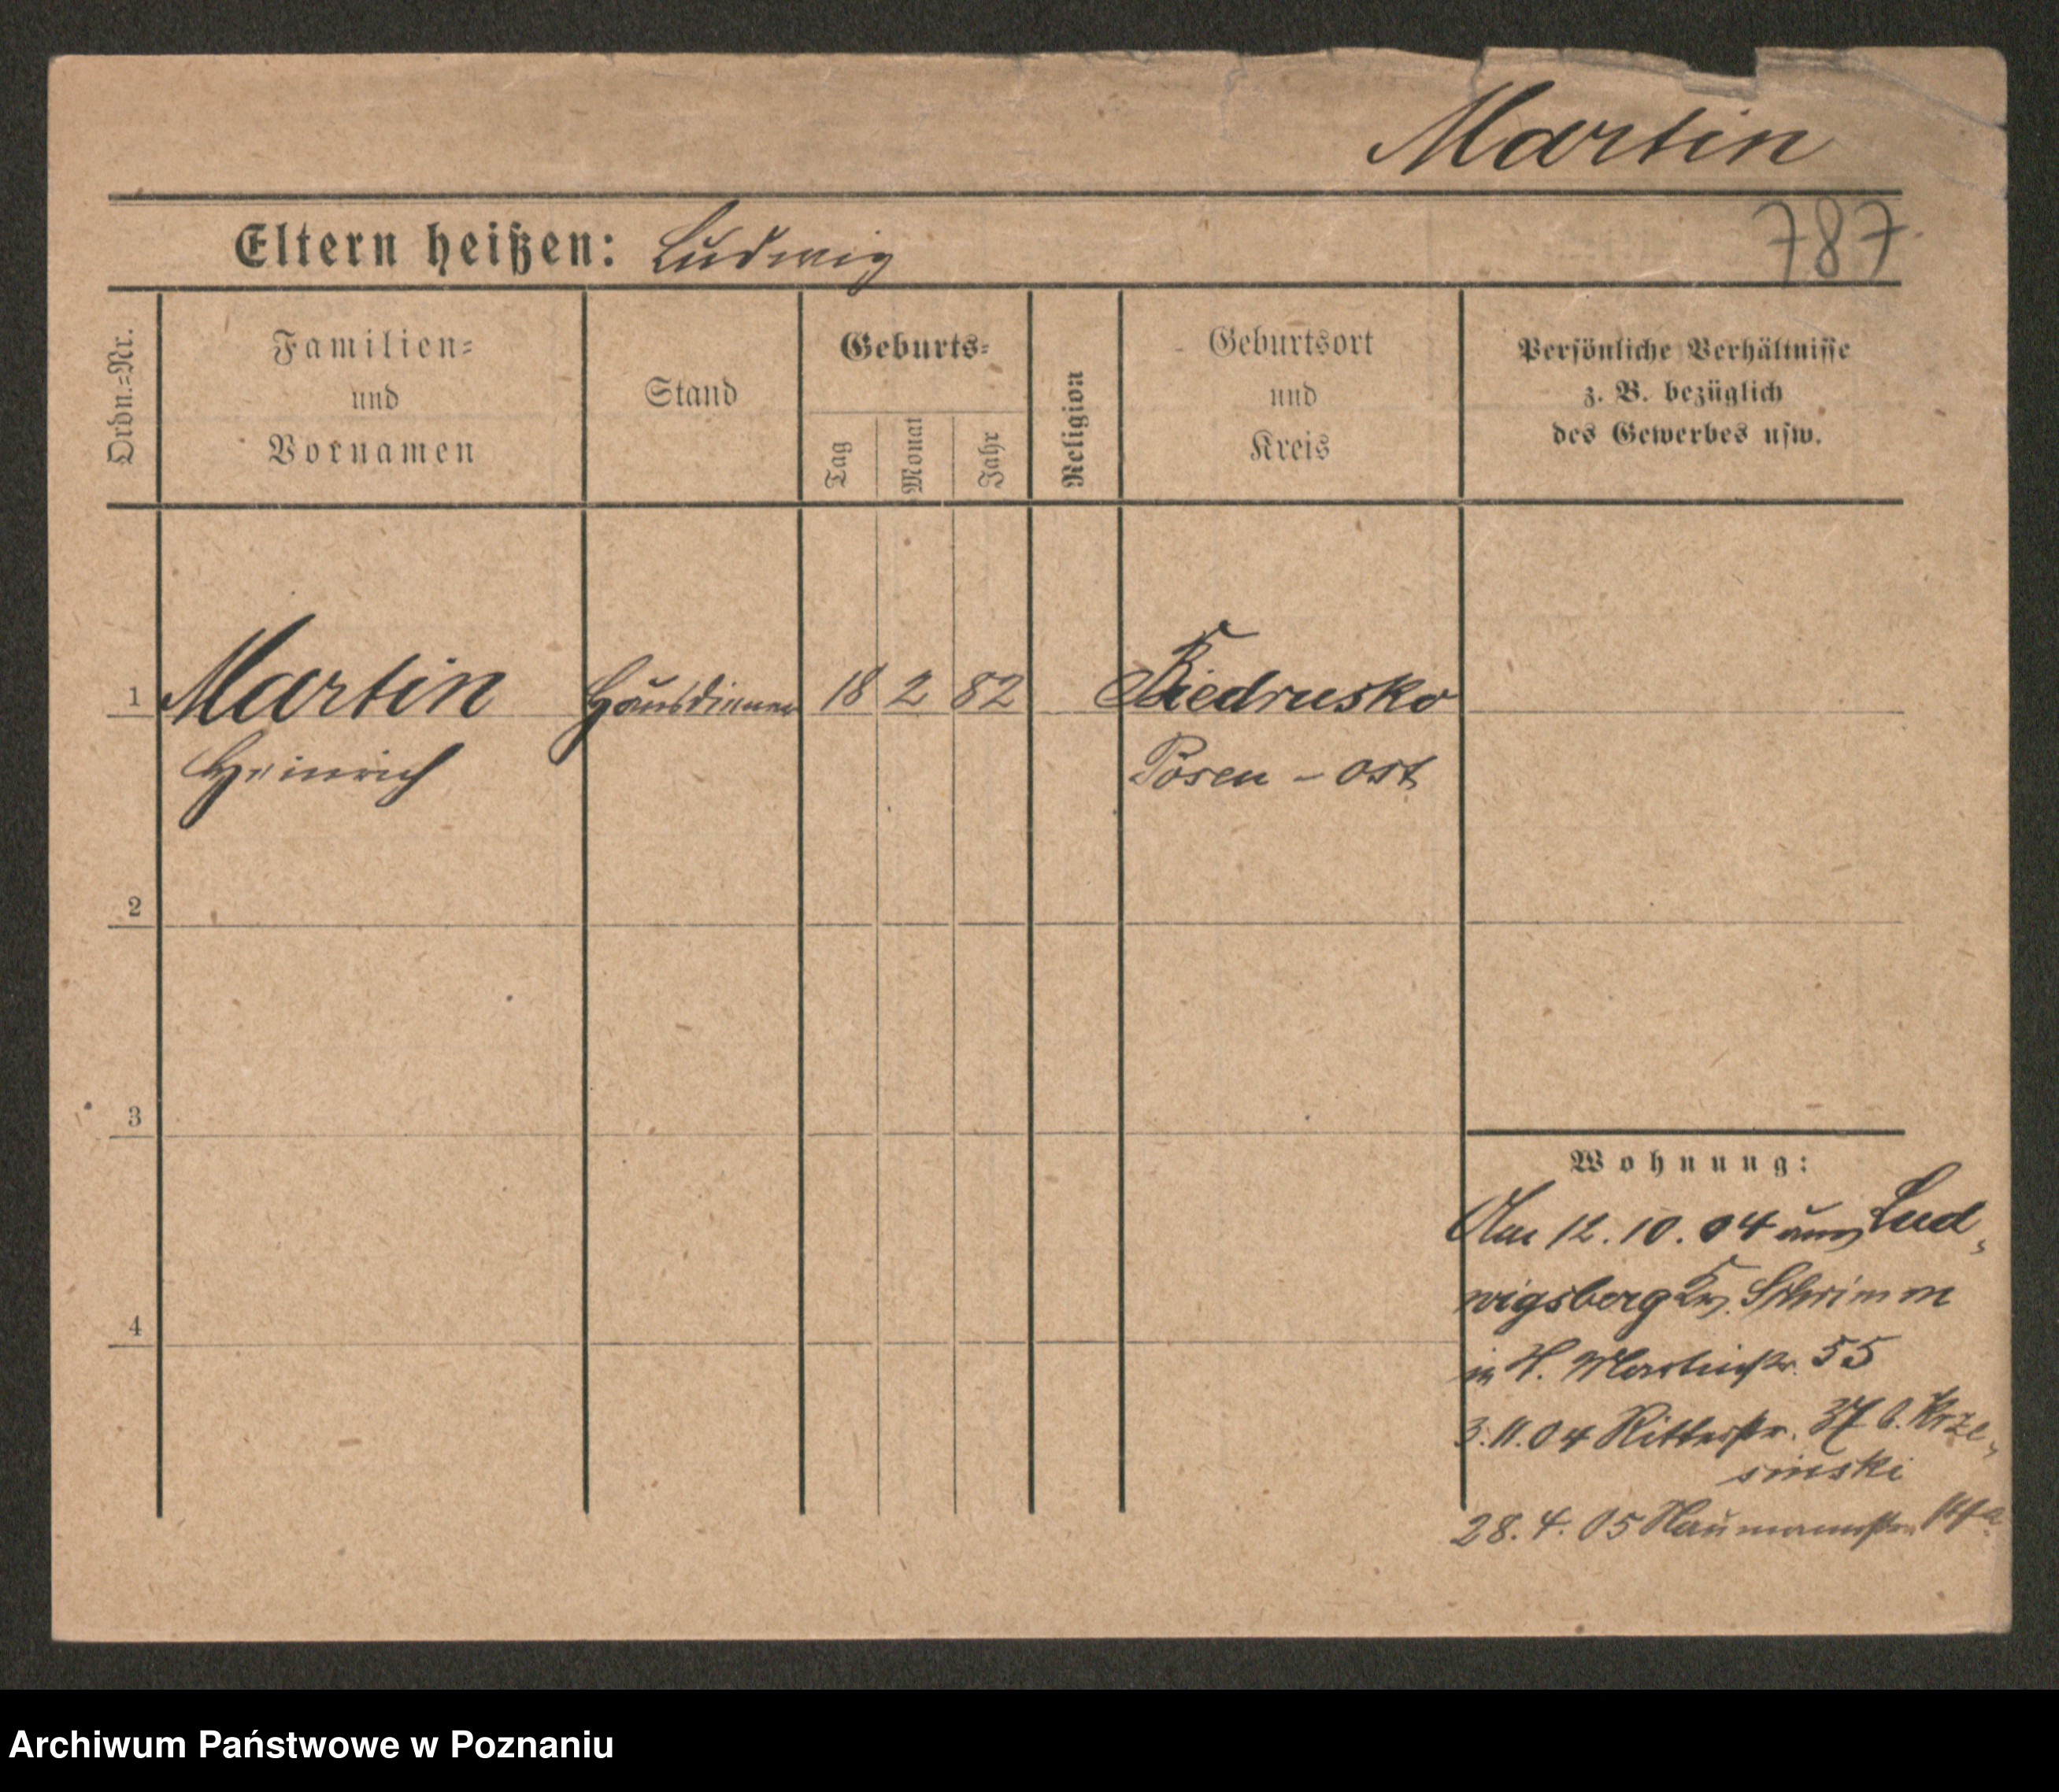 Martin
787
Eltern heißen: Ludwig
Ordn.=Nr.
Familien=
und
Vornamen
Stand
Geburts=
Tag
Monat
Jahr
Religion
Geburtsort
und
Kreis
Persönliche Verhältnisse
z. B. bezüglich
des Gewerbes usw.
1 Martin Hausdiener 18 2 82 Biedrusko
Heinrich Posen - Ost
2
3
4
Wohnung:
Am 12.10.04 aus Lud-
wigsberg Kr. Schrimm
in St. Martinstr. 55
3.11.04 Ritterstr. 37 b. Krze-
sinski
28.4.05 Naumannstr.
Archiwum Państwowe w Poznaniu